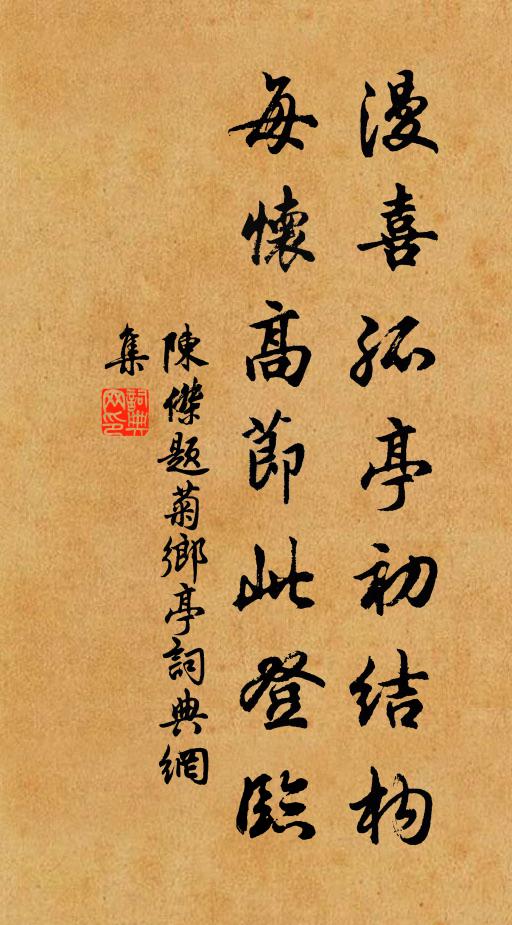 漫喜孤亭初结构
每懷高節此登臨
陳傑題菊鄉亭詞典網
集
詞典网印